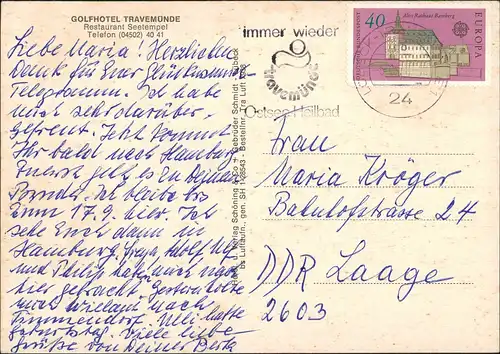 GOLFHOTEL TRAVEMÜNDE
Restaurant Seetempel
Telefon (04502) 40 41
Liebe Maria! Herzlichen
Dank für Euer Glückwunsch
Telegramm. Ich habe
mich sehr darüber
gefreut. Jetzt kommt
Ihr bald nach Hamburg
Zuerst geht es zu Deinem
Bruder. Ich bleibe bis
zum 17.9. hier. Ich
sehe Euch dann in
Hamburg. Adolf,
und Philip haben auch nach
hier gebracht. Gestern holte
mich nach
Timmendorf. Ulli hatte
Geburtstag. Viele liebe
Grüße von Deiner Berta
Verlag Schöning & Co + Gebrüder Schmidt, Lübeck
Luftaufn., gen. SH 1-28543 - Bestellnr. Tra Luft
immer wieder
travemünde
Ostsee Heilbad
24
40
Altes Rathaus Bamberg
EUROPA
CEPT
DEUTSCHE BUNDESPOST
Frau
Maria Kröger
Bahnhofstrasse 24
DDR Laage
2603